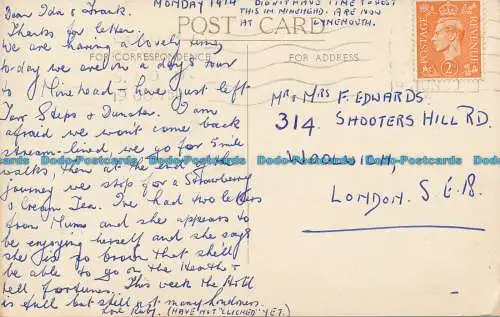 MONDAY 19TH
DIDN'T HAVE TIME TO POST
THIS IN MINEHEAD. ARE NOW
AT LYNEMOUTH.
POST CARD
FOR CORRESPONDENCE
FOR ADDRESS
POSTAGE
REVENUE
2D
Dear Ida & Frank.
Thanks for letter.
We are having a lovely time,
to-day we are on a day's tour
to Minehead – have just left
Tarr Steps & Dunster. I am
afraid we wont come back
stream-lined we go for 5 mile
walks, then at the end of the
journey we stop for a Strawberry
& Cream Tea. I've had two letters
from Mum and she appears to
be enjoying herself and she says
she is so brown that she'll
be able to go on the Heath &
tell fortunes. This week the Hotel
is full but still not many
Love Ruby. (HAVE NOT "CLICKED" YET.)
MR & MRS F. EDWARDS
314 SHOOTERS HILL RD.
WOOLWICH,
LONDON. S.E.18.
Dodo-Postcards.com